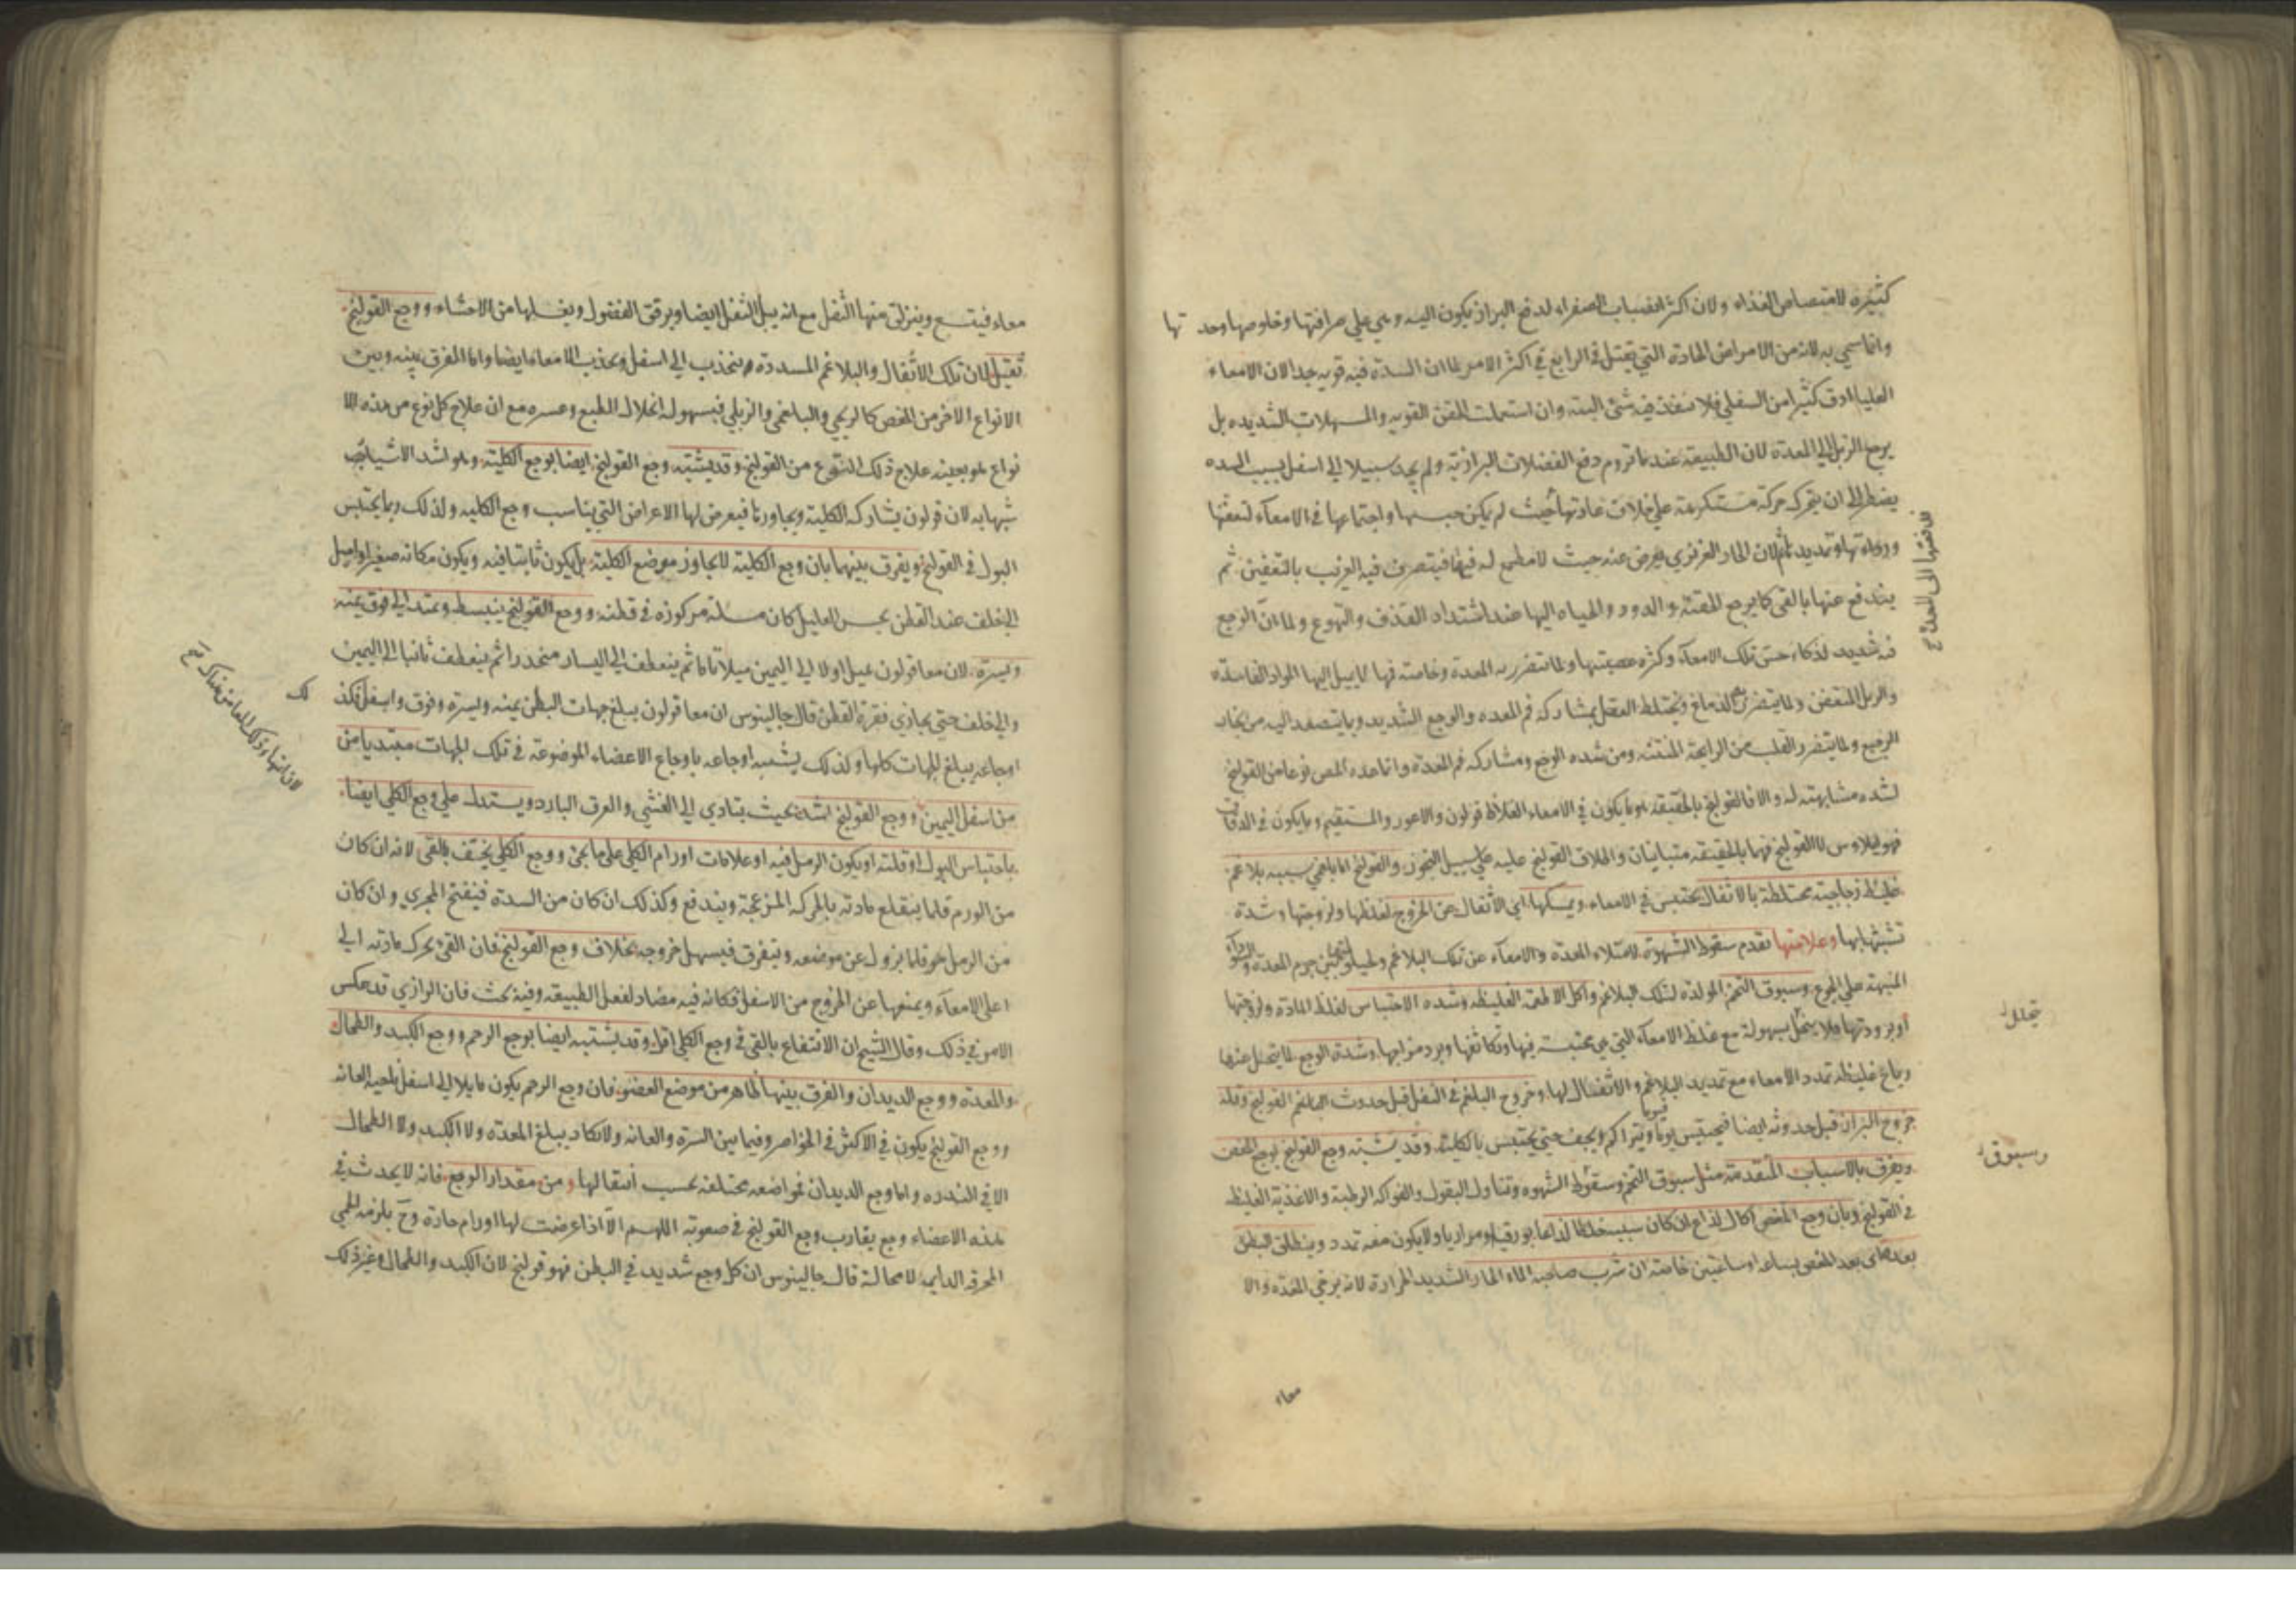 كثيرة لامتصاص الغذاء ولان اكثر انصباب الصفراء لدفع البراز يكون اليه وهي على صرافتها وخلوصها وحد تها
وانما سمي به لانه من الامراض الحادة التي تقتل في الرابع في اكثر الامر لما ان السدة فيه قويه جدا لان الامعاء
العليا ادق كثيرا من السفلى فلا ينفذ فيه شئ البته وان استعملت الحقن القويه والمسهلات الشديده بل
يرجع الزبل الى المعدة لان الطبيعة عند ما تروم دفع الفضلات البرازية ولم يجد سبيلا الى اسفل بسبب السده
يضطر الى ان يتحرك حركة مستكرهة على خلاف عادتها حيث لم يكن حبسها واجتماعها في الامعاء لتعفنها
ورداءتها وتمديد لان الحار الغريزي يعرض عنه حيث لا مطمع له فيها فيتصرف فيه الغريب بالتعفين ثم
يندفع عنها بالقى كما يرجع الحقنة والدود والمياه اليها عند اشتداد القذف والتهوع ولما ان الوجع
فيه شديد لذكاء حس تلك الامعاء وكثرة عصبيتها ولما تتضرر به المعدة وخاصة فمها لما يميل اليها المواد الفاسده
والزبل المتعفن ولما يتضرر الدماغ ويختلط العقل بمشاركة فم المعده والوجع الشديد وبما يتصعد اليه من بخار
الرجيع ولما يتضرر القلب من الرايحة المنتنه ومن شده الوجع ومشاركه فم المعدة وانما عده المص نوعا من القولنج
لشده مشابهته له والا فالقولنج بالحقيقة هو ما يكون في الامعاء الغلاظ قولون والاعور والمستقيم وما يكون في الدقاق
فهو ايلاوس لا القولنج فهما بالحقيقه متباينان واطلاق القولنج عليه على سبيل التجوز والقولنج اما بلغمي سببه بلاغم
غليظه زجاجية مختلطة بالاثفال يحتبس في الامعاء ويمسكها اي الاثفال عن الخروج لغلظها ولزوجتها وشدة
تشبثها بها وعلامتها تقدم سقوط الشهوة لامتلاء المعدة والامعاء عن تلك البلاغم ولحيلولتها بين جرم المعدة والسوداء
المنبهة على الجوع وسبوق التخم المولدة لتلك البلاغم واكل الاطعمة الغليظه وشده الاحتباس لغلظ المادة ولزوجتها
او برودتها فلا يتحلل بسهولة مع غلظ الامعاء التي هي محتبسة فيها وتكاثفها وبرد مزاجها وشدة الوجع لما يتحلل عنها
رياح غليظه تمدد الامعاء مع تمديد البلاغم والاثفال لها وخروج البلغم في الثفل قبل حدوث القولنج وقلة
خروج البراز قبل حدوثه ايضا فيحتبس يوما فيوما ويتراكم ويجف حتى يحتبس بالكلية وقد يشتبه وجع القولنج بوجع المغص
ويفرق بالاسباب المتقدمة مثل سبوق التخم وسقوط الشهوه وتناول البقول والفواكه الرطبة والاغذية الغليظه
في القولنج وبان وجع المغص اكال لذاع ان كان سببه خلطا لذاعا بورقيا او مراريا ولا يكون معه تمدد وينطلق البطن
بعده اى بعد المغص بساعه او ساعتين خاصة ان شرب صاحبه الماء الحار الشديد الحرارة لانه يرخي المعدة والا
معاء
تتحلل
وسبوق
معاء فيتسع وينزلق منها الثفل مع انه يبل الثفل ايضا ويرقق الفضول ويغسلها من الاحشاء ووجع القولنج
ثقيل لان تلك الاثفال والبلاغم المسددة ينجذب الى اسفل ويجذب الامعاء ايضا واما الفرق بينه وبين
الانواع الاخر من المغص كالريحي والبلغمي والزبلي فبسهوله انحلال الطبع وعسره مع ان علاج كل نوع من هذه الا
نواع هو بعينه علاج ذلك النوع من القولنج وقد يشتبه وجع القولنج ايضا بوجع الكلية وهو اشد الاشياء
شبها به لان قولون يشارك الكلية ويجاورها فيعرض لها الاعراض التي يناسب وجع الكليه ولذلك ربما يحتبس
البول في القولنج ويفرق بينهما بان وجع الكلية لا يجاوز موضع الكلية بل يكون ثابتا فيه ويكون مكانه صغيرا واميل
الى خلف عند القطن يحس العليل كان مسلة مركوزة في قطنه ووجع القولنج ينبسط ويمتد الى فوق يمنه
ويسرة لان معا قولون يميل اولا الى اليمين ميلا تاما ثم ينعطف الى اليسار منحدرا ثم ينعطف ثانيا الى اليمين
والى خلف حتى يحاذي فقرة القطن قال جالينوس ان معا قولون يبلغ جهات البطن يمنه ويسرة وفوق واسفل فكذ لك
اوجاعه يبلغ الجهات كلها وكذلك يشبه اوجاعه باوجاع الاعضاء الموضوعة في تلك الجهات مبتديا من
من اسفل اليمين ووجع القولنج اشد بحيث يتادي الى الغشي والعرق البارد ويستدل على وجع الكلي ايضا
باحتباس البول او قلته او يكون الرمل فيه او علامات اورام الكلي على ما يجئ ووجع الكلي يخف بالقى لانه ان كان
من الورم فلما ينقلع مادته بالحركه المزعجة ويندفع وكذلك ان كان من السدة فينفتح المجري وان كان
من الرمل فلما يزول عن موضعه ويتفرق فيسهل خروجه بخلاف وجع القولنج فان القئ يحرك مادته الى
اعلى الامعاء ويمنعها عن الخروج من الاسفل فكانه فيه مضاد لفعل الطبيعة وفيه بحث فان الرازي قد عكس
الامر في ذلك وقال الشيخ ان الانتفاع بالقى في وجع الكلي اقل وقد يشتبه ايضا بوجع الرحم ووجع الكبد والطحال
والمعده ووجع الديدان والفرق بينها ظاهر من موضع العضو فان وجع الرحم يكون مايلا الى اسفل ناحية العانه
ووجع القولنج يكون في الاكثر في الخواصر وفيما بين السرة والعانه ولا يكاد يبلغ المعده ولا الكبد ولا الطحال
الا في الندره واما وجع الديدان فمواضعه مختلفه بحسب انتقالها ومن مقدار الوجع فانه لا يحدث في
هذه الاعضاء وجع يقارب وجع القولنج في صعوبته اللهم الا اذا عرضت لها اورام حادة وح يلزمه الحمي
المحرقه الدايمه لا محالة قال جالينوس ان كل وجع شديد في البطن فهو قولنج لان الكبد والطحال وغير ذلك